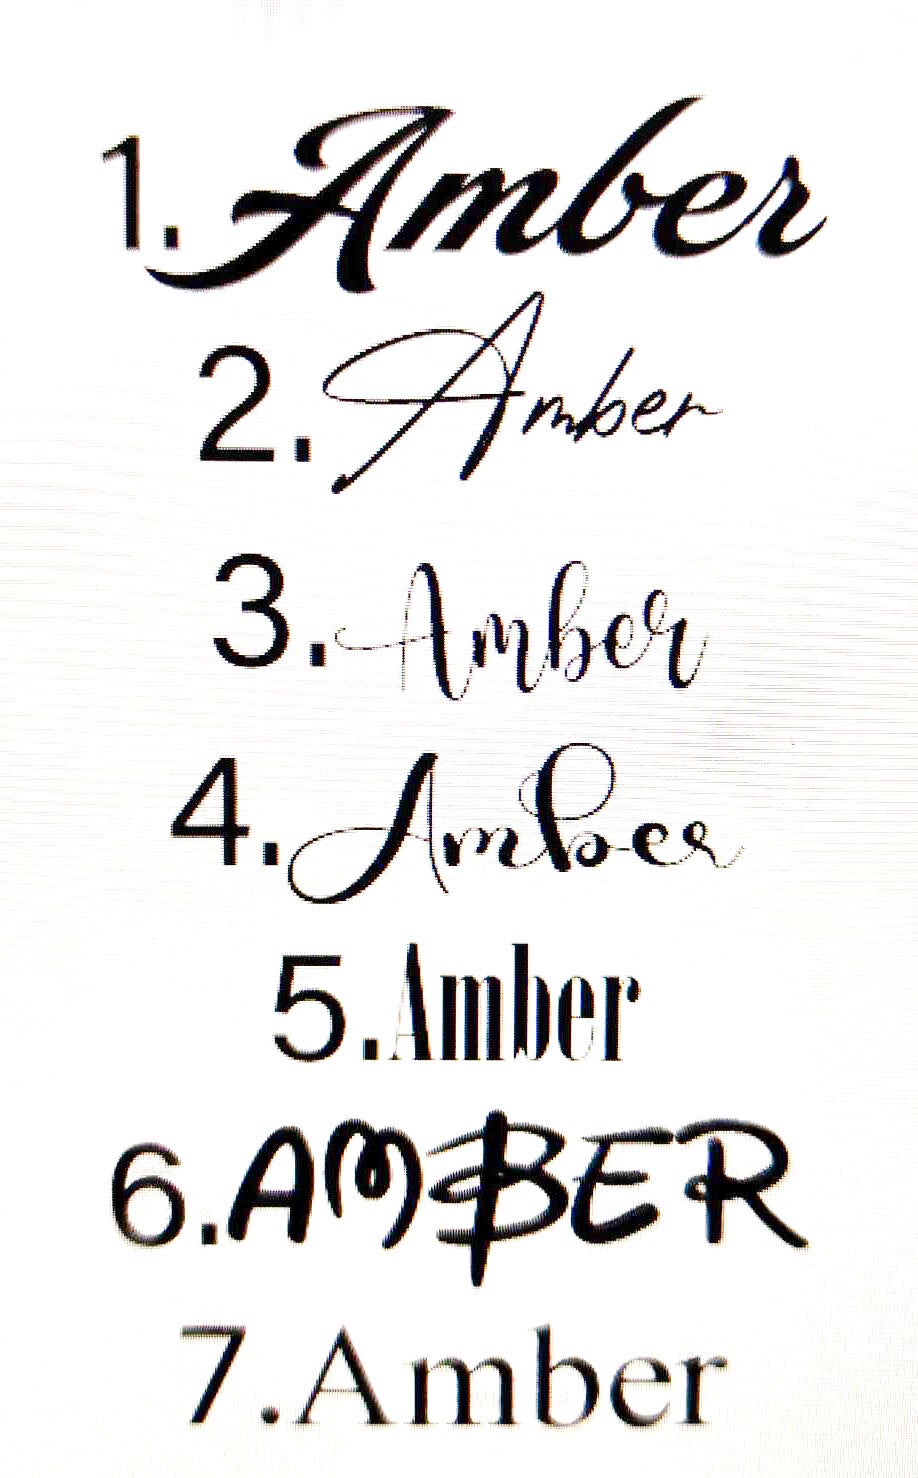 1. Amber
2. Amber
3. Amber
4. Amber
5. Amber
6. AMBER
7. Amber